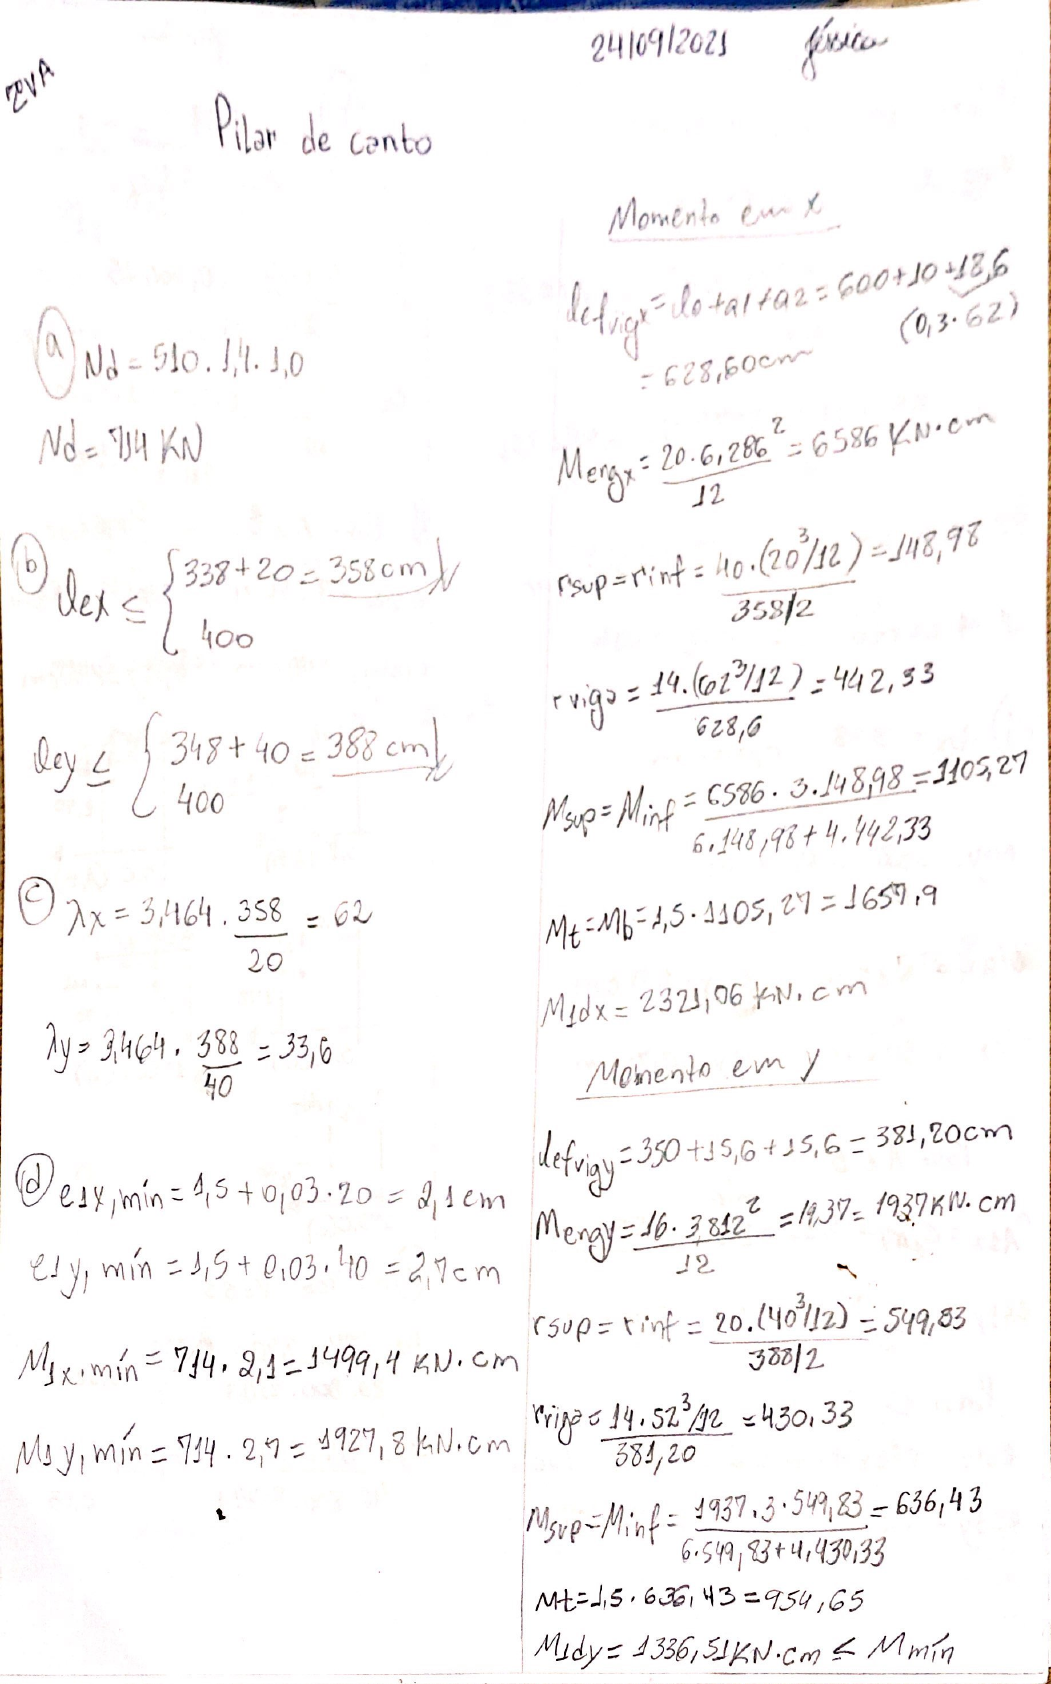 24/09/2021 Jéssica
EVA
Pilar de canto
a) Nd = 510 . 1,4 . 1,0
Nd = 714 KN
b) lex ≤ { 338 + 20 = 358 cm
400
ley ≤ { 348 + 40 = 388 cm
400
c) λx = 3,464 . 358 / 20 = 62
λy = 3,464 . 388 / 40 = 33,6
d) e1x,mín = 1,5 + 0,03 . 20 = 2,1 cm
e1y, mín = 1,5 + 0,03 . 40 = 2,7 cm
M1x,mín = 714 . 2,1 = 1499,4 KN.cm
M1y, mín = 714 . 2,7 = 1927,8 KN.cm
Momento em x
lefvigx = lo + a1 + a2 = 600 + 10 + 18,6
(0,3 . 62)
= 628,60cm
Mengx = 20 . 6,286² / 12 = 6586 KN.cm
rsup = rinf = 40 . (20³/12) / 358/2 = 148,98
rviga = 14 . (62³/12) / 628,6 = 442,33
Msup = Minf = 6586 . 3 . 148,98 / 6 . 148,98 + 4 . 442,33 = 1105,27
Mt = Mb = 1,5 . 1105,27 = 1657,9
M1dx = 2321,06 KN.cm
Momento em y
lefvigy = 350 + 15,6 + 15,6 = 381,20cm
Mengy = 16 . 3,812² / 12 = 19,37 = 1937 KN.cm
rsup = rinf = 20 . (40³/12) / 388/2 = 549,83
rviga = 14 . 52³/12 / 381,20 = 430,33
Msup = Minf = 1937 . 3 . 549,83 / 6 . 549,83 + 4 . 430,33 = 636,43
Mt = 1,5 . 636,43 = 954,65
M1dy = 1336,51 KN.cm ≤ Mmín